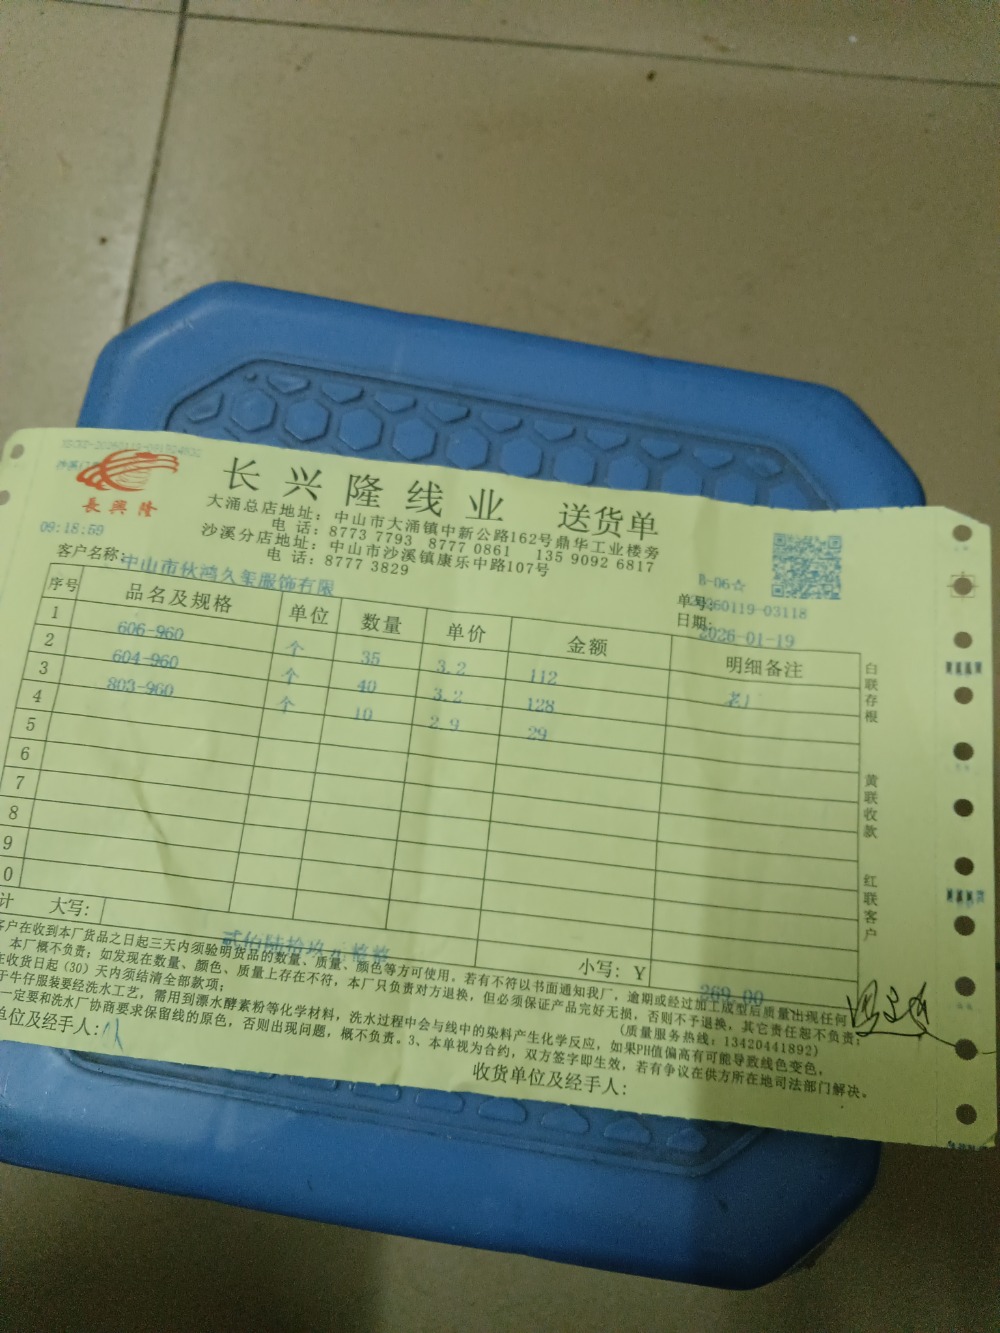 長興隆
长兴隆线业 送货单
大涌总店地址：中山市大涌镇中新公路162号鼎华工业楼旁
电 话：8773 7793 8777 0861 135 9092 6817
沙溪分店地址：中山市沙溪镇康乐中路107号
电 话：8777 3829
09:18:59
B-06☆
客户名称：中山市秋鸿久玺服饰有限
单号：260119-03118
日期：2026-01-19
序号 品名及规格 单位 数量 单价 金额 明细备注
1 606-960 个 35 3.2 112
2 604-960 个 40 3.2 128
3 803-960 个 10 2.9 29
4
5
6
7
8
9
0
计 大写：贰佰陆拾玖
小写：¥ 269.00
白联存根 黄联收款 红联客户
客户在收到本厂货品之日起三天内须验明货品的数量、质量、颜色等方可使用，若有不符以书面通知我厂，逾期或经过加工成型后质量出现任何
本厂概不负责；如发现在数量、颜色、质量上存在不符，本厂只负责对方退换，但必须保证产品完好无损，否则不予退换，其它责任恕不负责；
收货日起（30）天内须结清全部款项；
（质量服务热线：13420441892）
于牛仔服装要经洗水工艺，需用到漂水酵素粉等化学材料，洗水过程中会与线中的染料产生化学反应，如果PH值偏高有可能导致线色变色，
一定要和洗水厂协商要求保留线的原色，否则出现问题，概不负责。3、本单视为合约，双方签字即生效，若有争议在供方所在地司法部门解决。
单位及经手人：
收货单位及经手人：